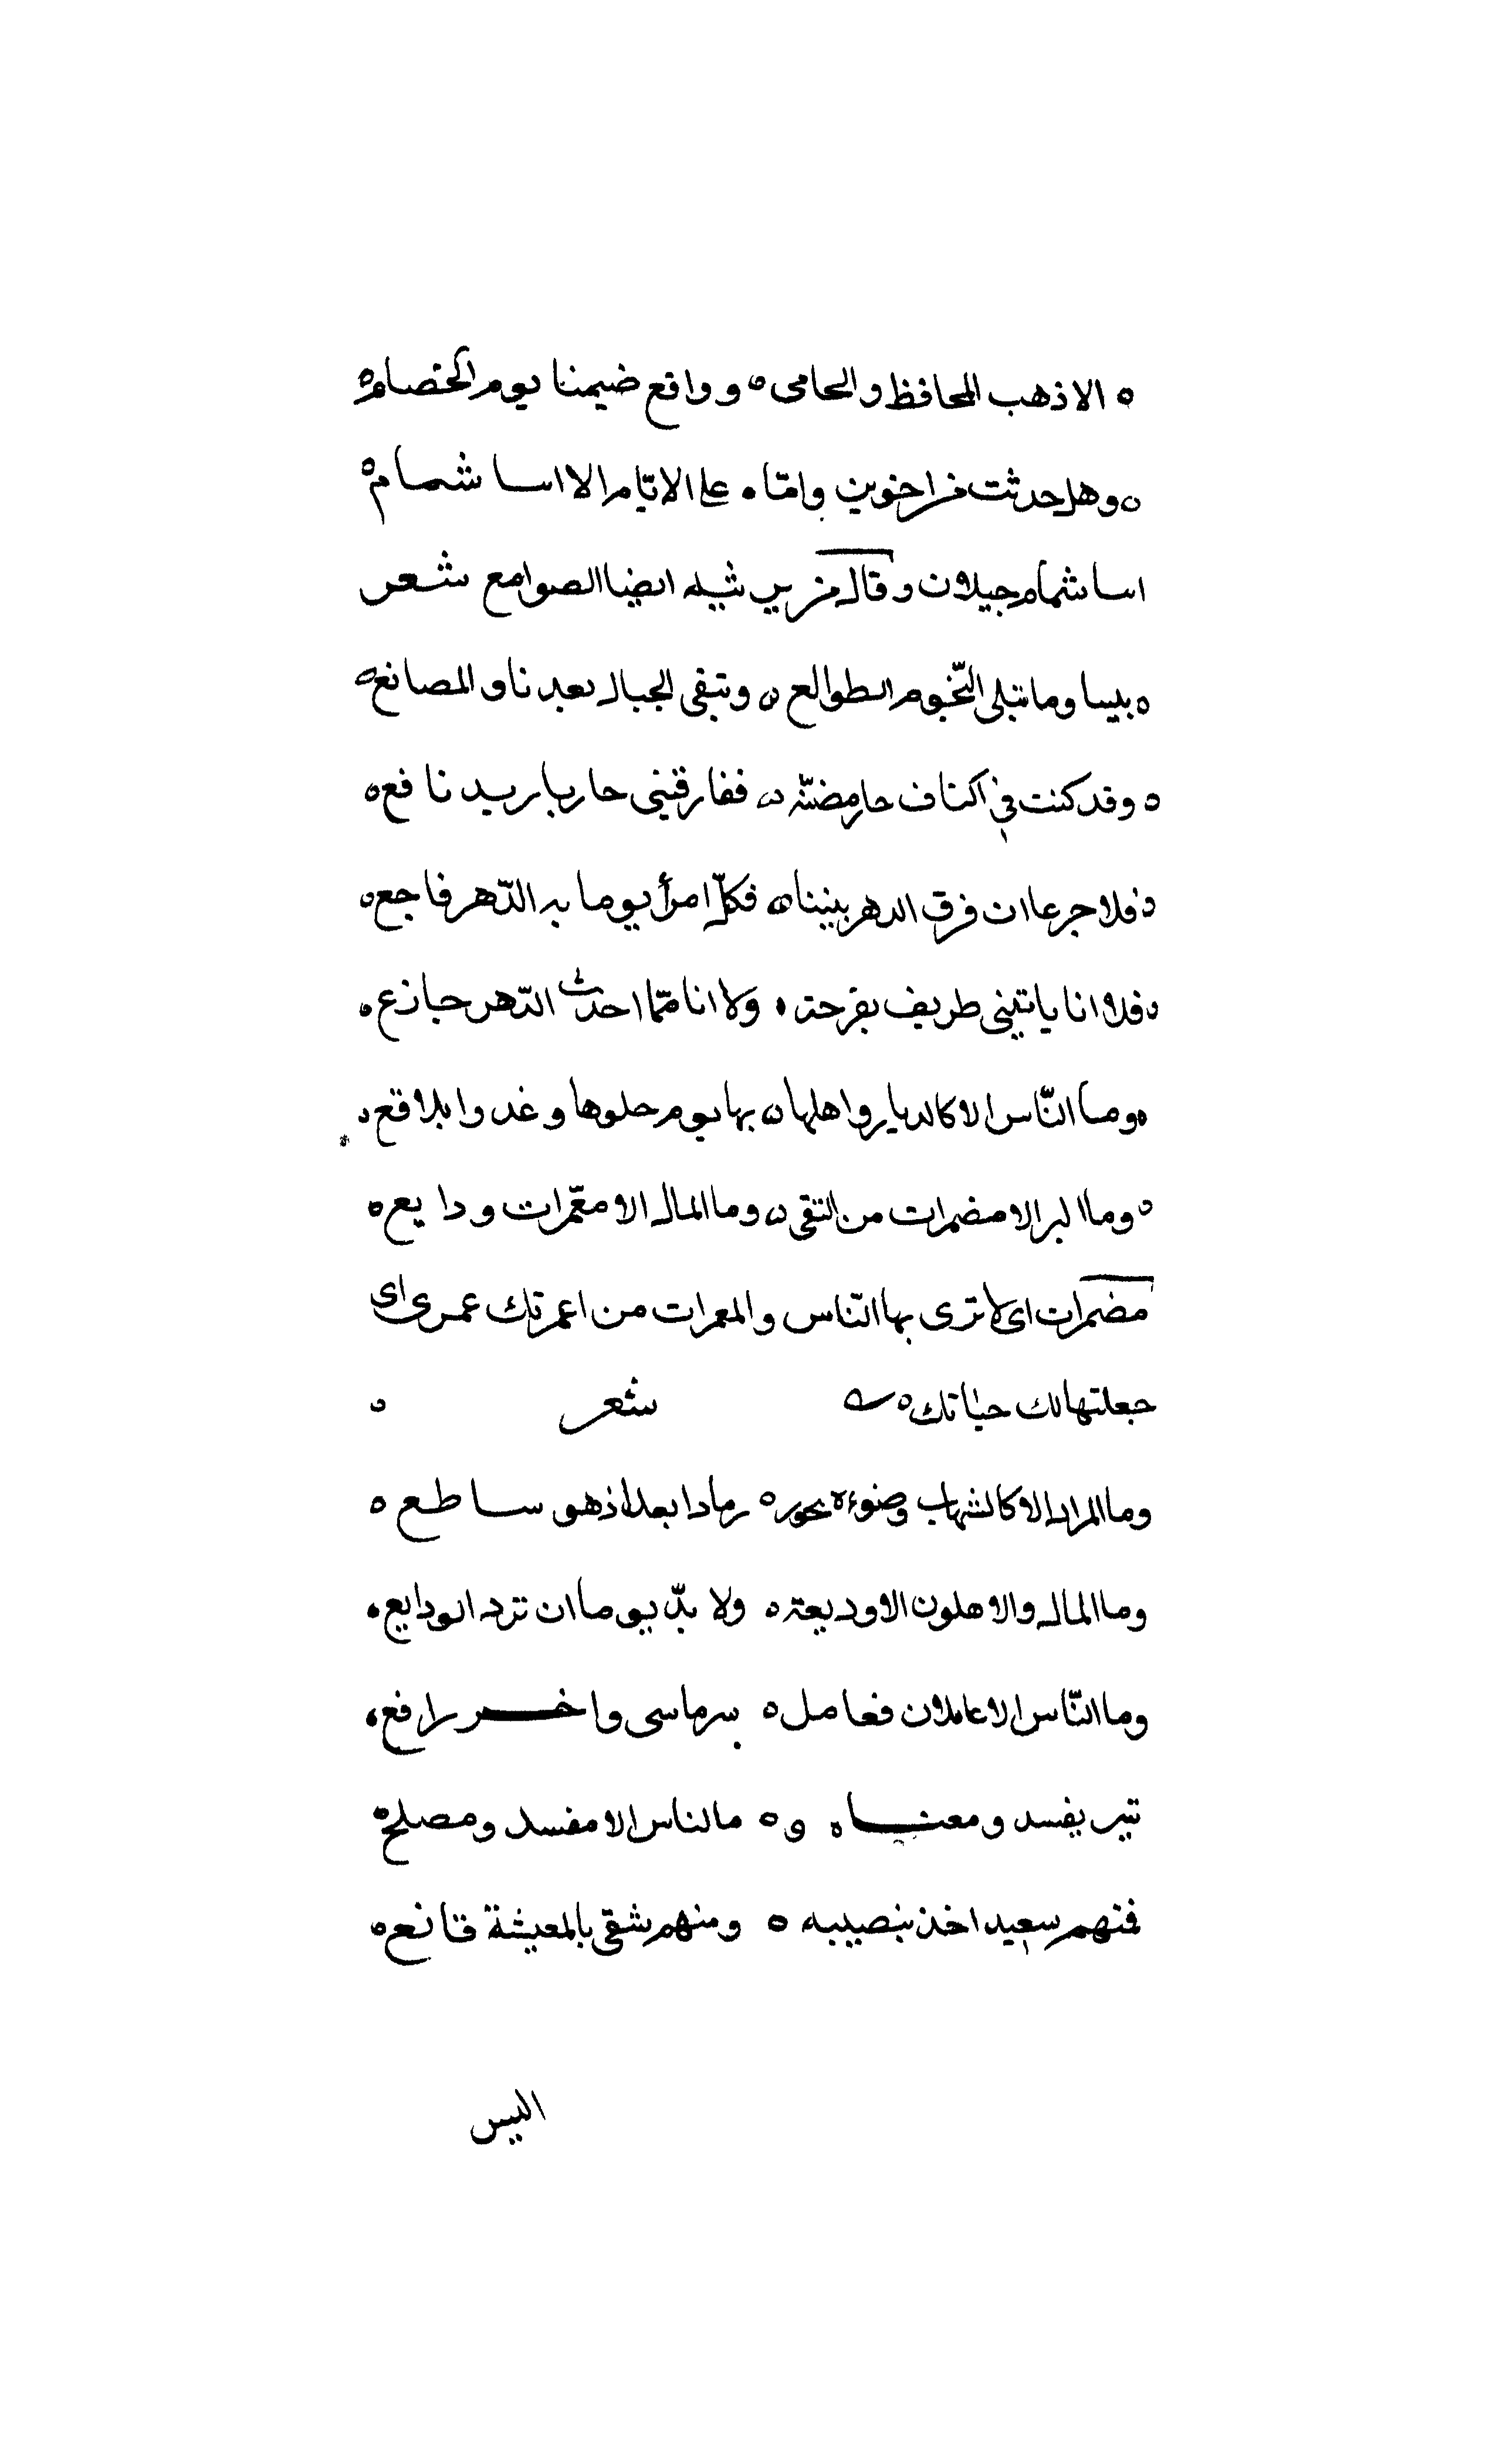 ه الا ذهب المحافظ والحامى ه و واقع ضيمنا يوم الخصام ه
ه وهل حدثت من اخوين واما ه على الايّام الا ابنا شمام ه
ابنا شمام جبلان وقال من يرثيه ايضا الصوامع شعر
ه بلينا وما تبلى النّجوم الطوالع ه وتبقى الجبال بعدنا والمصانع ه
ه وقد كنت فى اكناف جار مضنّة ه ففارقنى جار باربد نافع ه
ه فلا جزعا ان فرق الدهر بيننا ه فكلّ امرأ يوما به الدّهر فاجع ه
ه فلا انا ياتينى طريف بفرحة ه ولا انا ممّا احدث الدّهر جازع ه
ه وما النّاس الا كالديار واهلها ه بها يوم حلوها وغدوا بلاقع ه
ه وما البر الا مضمرات من التقى ه وما المال الا معمّرات ودايع ه
مضمرات اى لا ترى بها النّاس والمعمرات من اعمرتك عمرى اى
جعلتها لك حياتك ه شعر ه
وما المرا الا كالشهاب وضوءه ه يحور ه رمادا بعد اذ هو ساطع ه
وما المال والاهلون الا وديعة ه ولا بدّ يوما ان ترد الودايع ه
وما النّاس الا عاملان فعامل ه يتبر ما يبنى واخر رافع ه
يتبر يفسد ومعناه و ه مالناس الا مفسد ومصلح ه
فمنهم سعيد اخذ بنصيبه ه ومنهم شقى بالمعيشة قانع ه
اليس